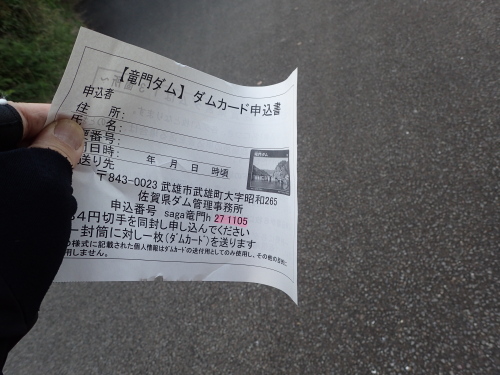 【竜門ダム】 ダムカード申込書
申込者
住 所:
氏 名:
番号:
日時: 年 月 日 時頃
送り先
竜門ダム
〒843-0023 武雄市武雄町大字昭和265
佐賀県ダム管理事務所
申込番号 saga竜門h 271105
84円切手を同封し申し込んでください
一封筒に対し一枚(ダムカード)を送ります
の様式に記載された個人情報はダムカードの送付用としてのみ使用し、その他の目的に
用しません。